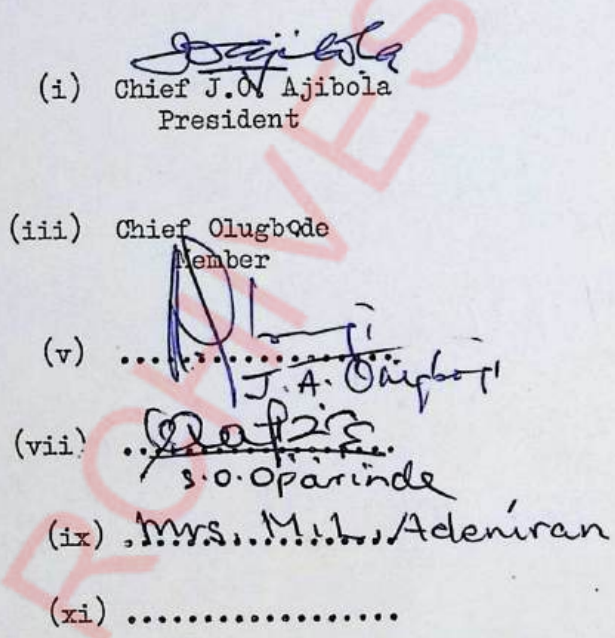 (i) Chief J.O. Ajibola
President
(iii) Chief Olugbode
Member
(v) ....................
J. A.
(vii) ....................
S.O. Oparinde
(ix) Mrs. M.L. Adeniran
(xi) ....................
ROHIVES